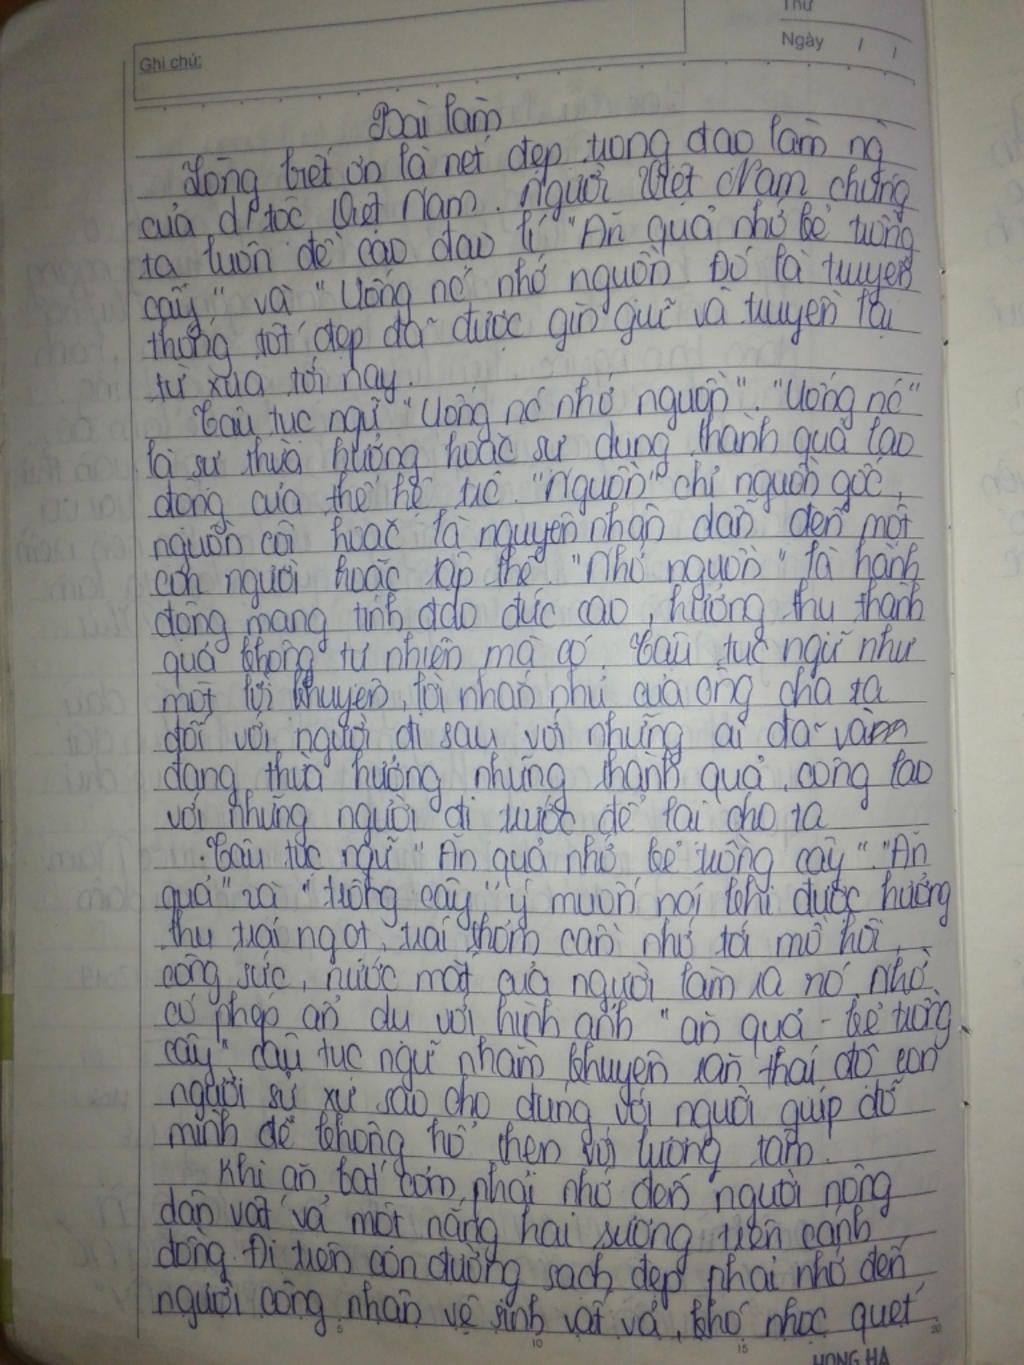 Thứ
Ngày / /
Ghi chú:
Bài làm
Lòng biết ơn là nét đẹp trong đạo làm ng
của dt tộc Việt Nam. Người Việt Nam chúng
ta luôn đề cao đạo lí "Ăn quả nhớ kẻ trồng
cây" và "Uống nc nhớ nguồn. Đó là truyền
thống tốt đẹp đã được gìn giữ và truyền lại
từ xưa tới nay.
Câu tục ngữ "Uống nc nhớ nguồn". "Uống nc"
là sự thừa hưởng hoặc sử dụng thành quả lao
động của thế hệ trc. "Nguồn" chỉ nguồn gốc,
nguồn cội hoặc là nguyên nhân dẫn đến một
con người hoặc tập thể. "Nhớ nguồn" là hành
động mang tính đạo đức cao, hưởng thụ thành
quả không tự nhiên mà có. Câu tục ngữ như
một lời khuyên, lời nhắn nhủ của ông cha ta
đối với người đi sau với những ai đã và
đang thừa hưởng những thành quả, công lao
với những người đi trước để lại cho ta
Câu tục ngữ "Ăn quả nhớ kẻ trồng cây". "Ăn
quả" và "trồng cây" ý muốn nói khi được hưởng
thụ trái ngọt, trái thơm cần nhớ tới mồ hôi,
công sức, nước mắt của người làm ra nó. Nhờ
có phép ẩn dụ với hình ảnh "ăn quả - kẻ trồng
cây" câu tục ngữ nhằm khuyên răn thái độ con
người sử xự sao cho đúng với người giúp đỡ
mình để không hổ thẹn với lương tâm.
Khi ăn bát cơm phải nhớ đến người nông
dân vất vả một nắng hai sương trên cánh
đồng. Đi trên con đường sạch đẹp phải nhớ đến
người công nhân vệ sinh vất vả, khó nhọc quét
5 10 15 20
HONG HA